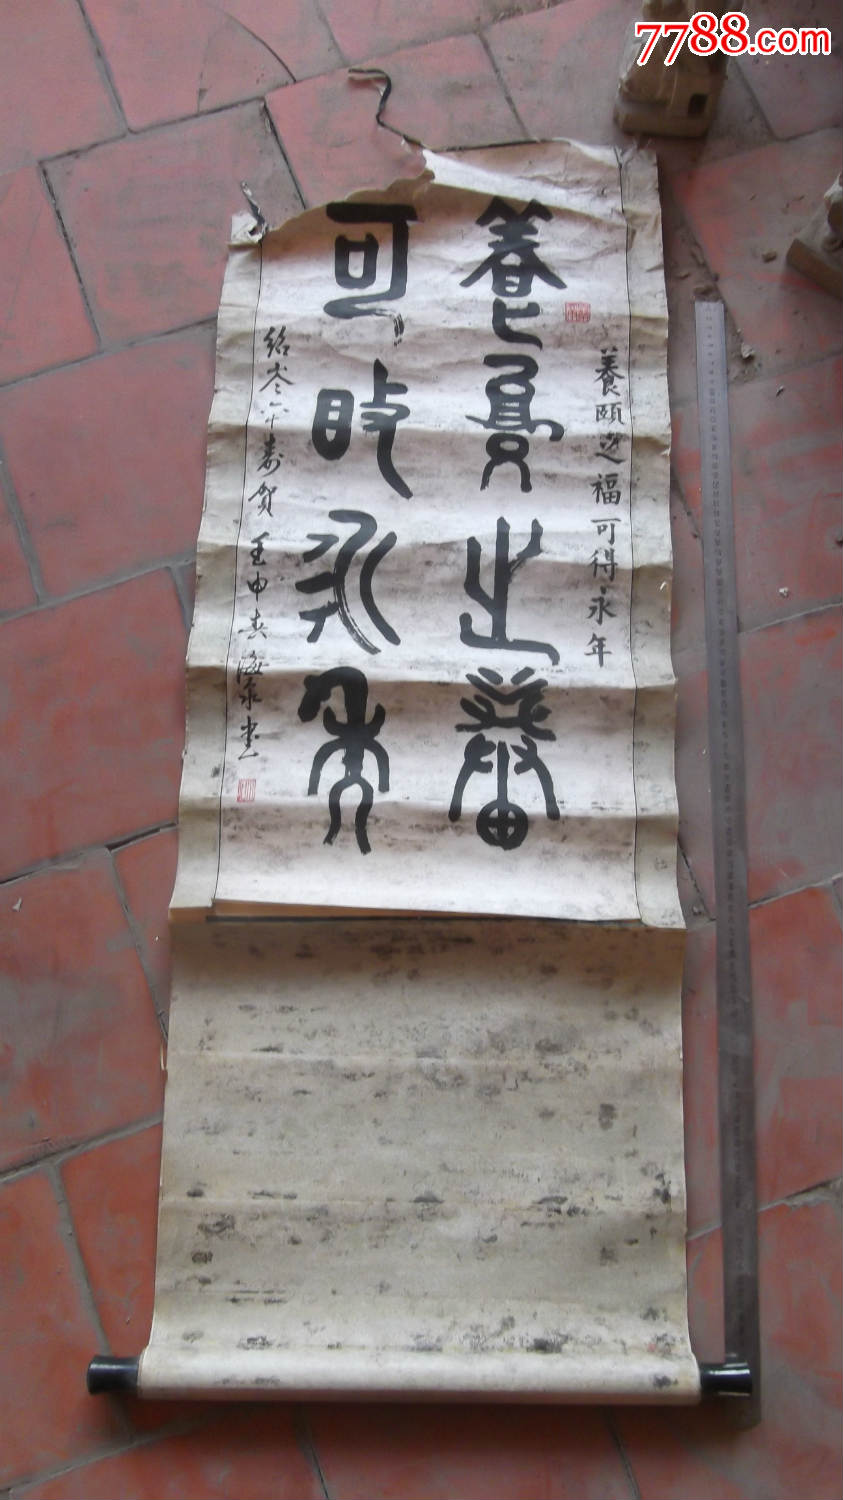 7788.com
養頤之福可得永年
養頤之福
可得永年
六十壽賀壬申春海泉書